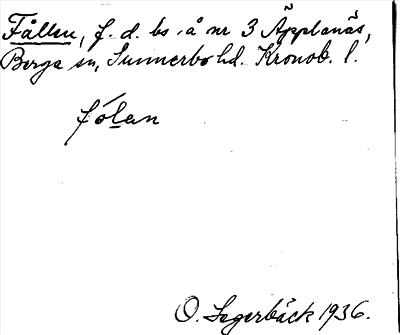 Fållen, f. d. bs å nr 3 Äpplanäs,
Berga sn, Sunnerbo hd. Kronob. l.
fólan
O. Segerbäck 1936.